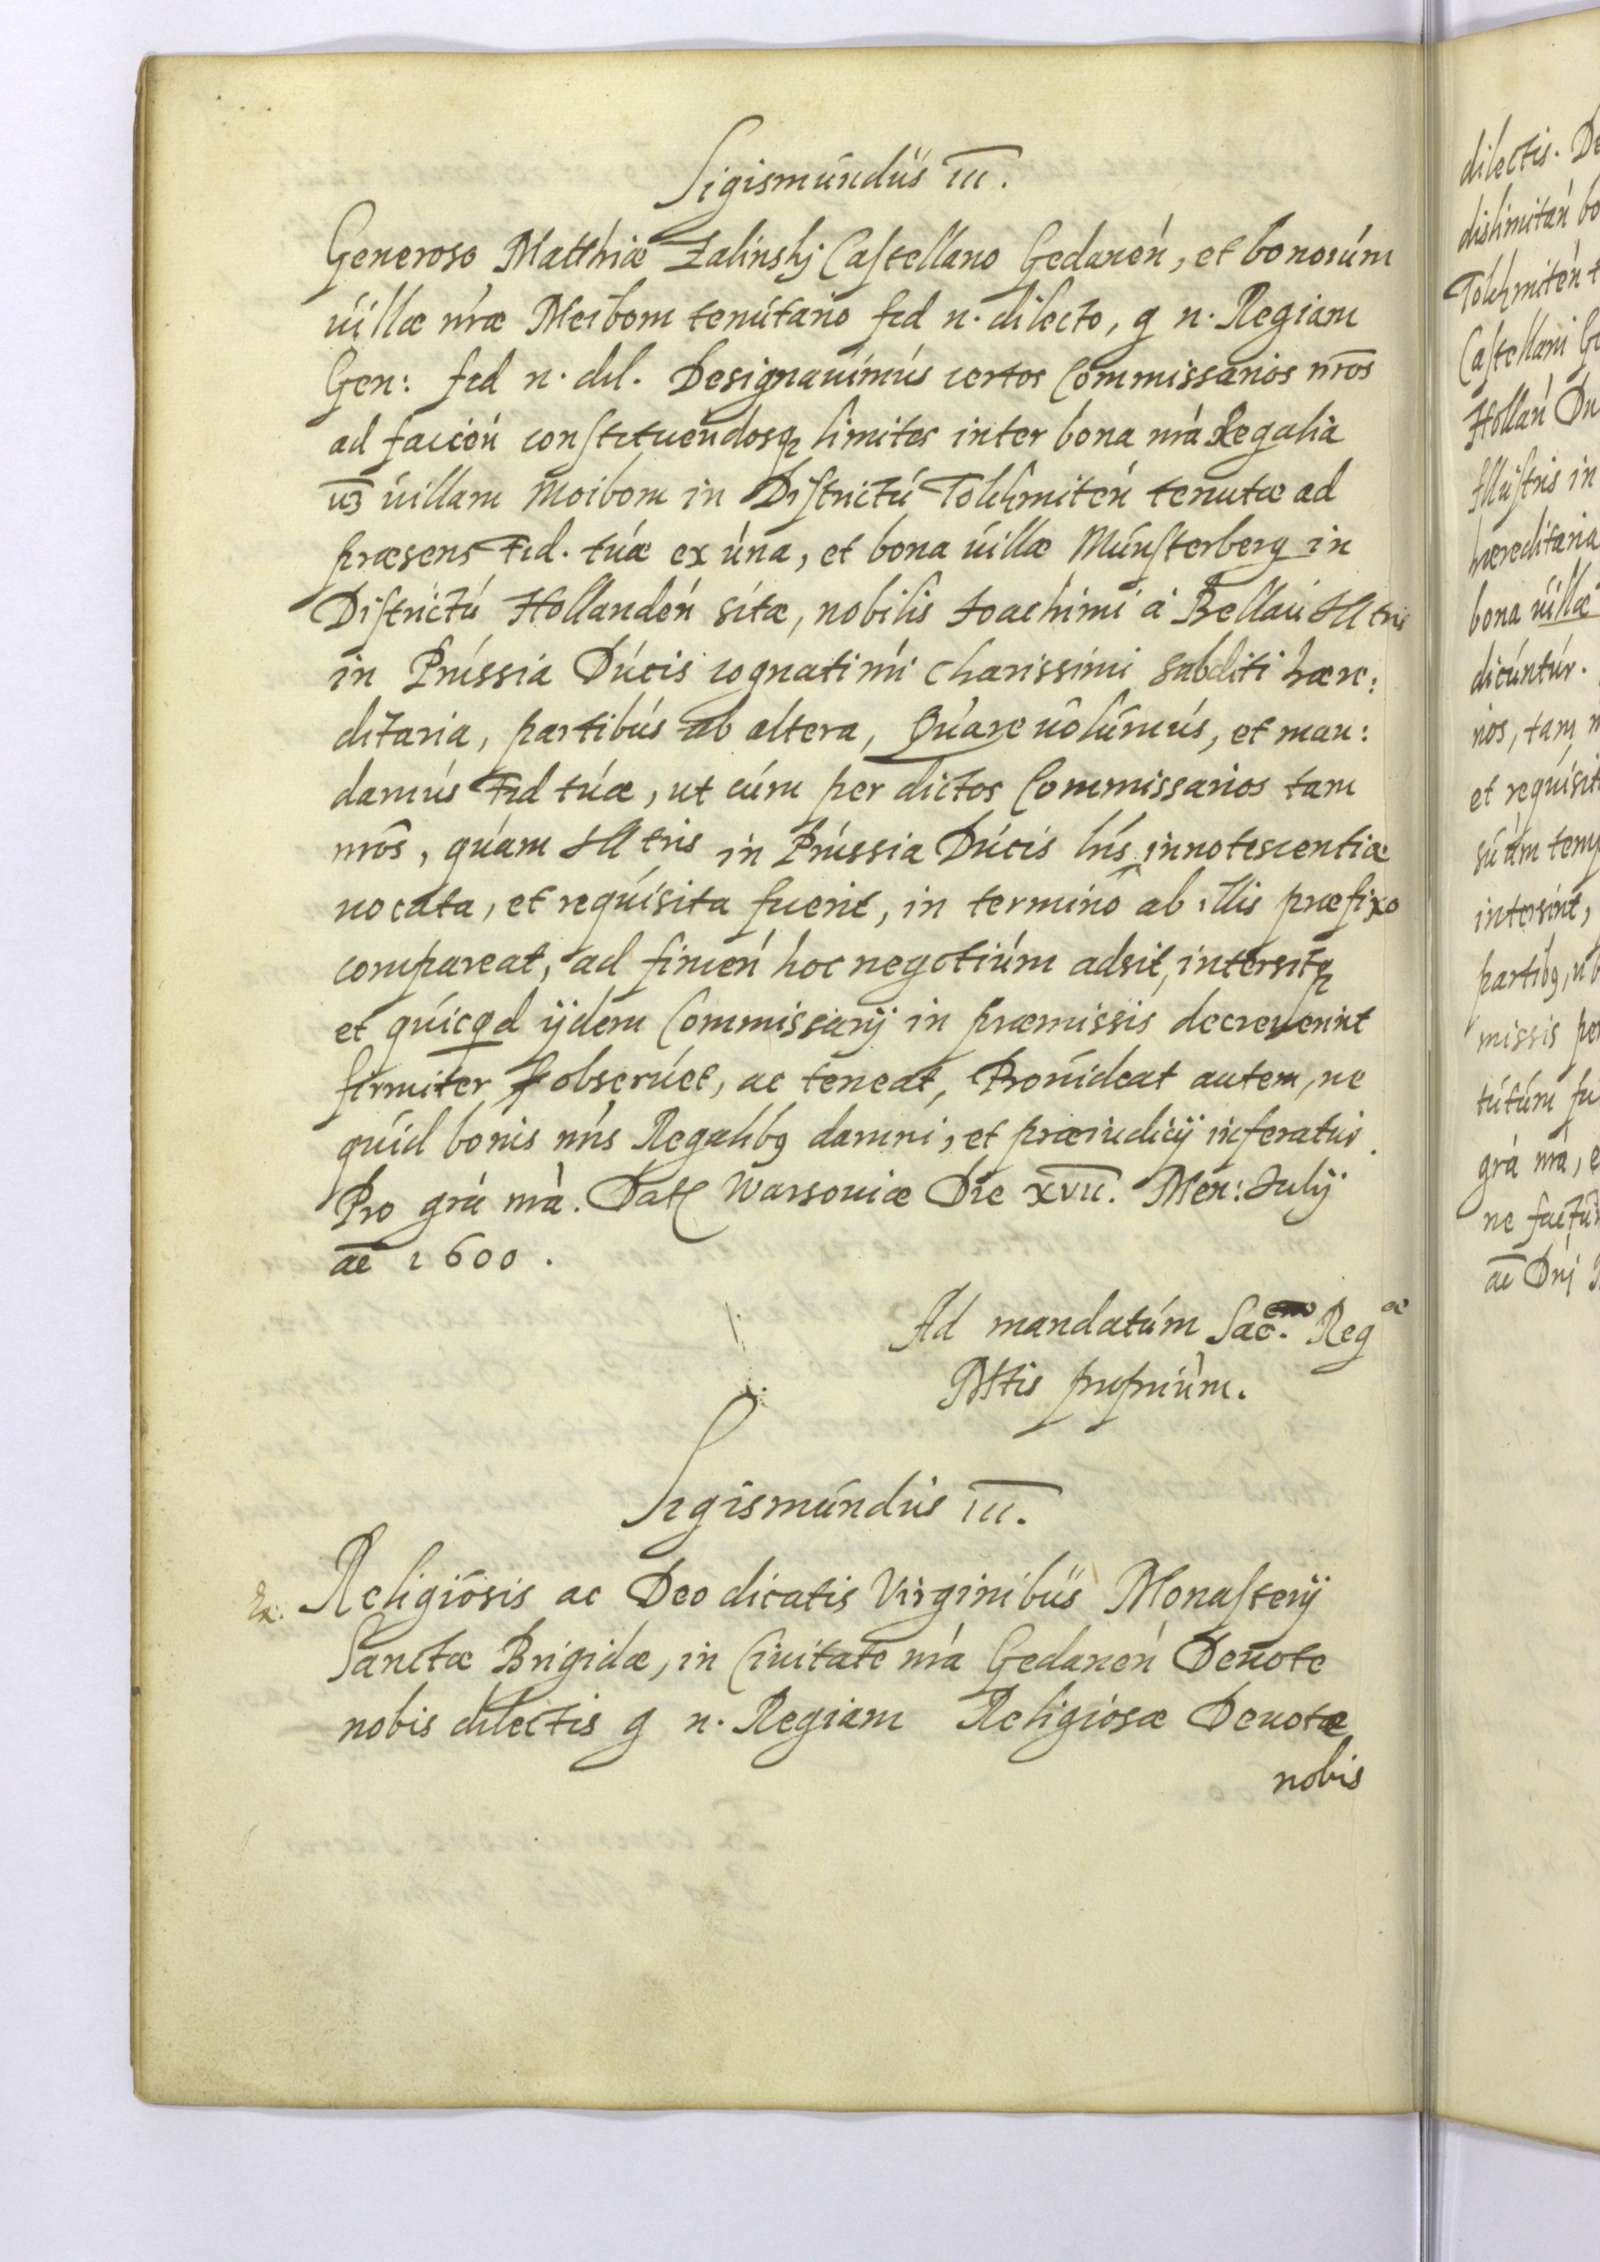 Sigismundus III.
Generoso Matthiæ Zalinskj Castellano Gedanen, et bonorum
villæ nræ Meibom tenutario fid n. dilecto, g n. Regiam
Gen: fid n. dil. Designavimus certos Commissarios nros
ad facien constituendosq limites inter bona nra Regalia
uz villam Moibom in Districtu Tolkhmiten tenutæ ad
præsens Fid. tuæ ex una, et bona villæ Munsterberg in
Districtu Hollanden sitæ, nobilis Joachimi a Bellau Illtris
in Prussia Ducis cognati nri charissimi subditi hære:
ditaria, partibus ab altera, Quare volumus, et man:
damus Fid tuæ, ut cum per dictos Commissarios tam
nros, quam Illtris in Prussia Ducis lris innotescentiæ
vocata, et requisita fuerit, in termino ab illis præfixo
compareat, ad finien hoc negotium adsit, intersitq
et quicqd ijdem Commissarij in præmissis decreverint
firmiter observet, ac teneat, Provideat autem, ne
quid bonis nris Regalibq damni, et præiudicij inferatur.
Pro gra nra. Dat Warsoviæ Die XVII. Men: Julij
ao 1600.
Ad mandatum Sac. Reg æ
Mttis proprium.
Sigismundus III.
Ex. Religiosis ac Deo dicatis Virginibus Monasterij
Sanctæ Brigidæ, in Civitate nra Gedanen Devote
nobis dilectis g n. Regiam Religiosæ Devotæ
nobis
dilectis. De
dislimitan bo
Tolkhmiten t
Castellani Ge
Hollan Du
Illustris in
hæreditaria
bona villæ
dicuntur.
rios, tam n
et requisit
suam temp
intersint,
partibq, ub
missis per
tutum fu
gra nra, e
ne factur
ao Dnj